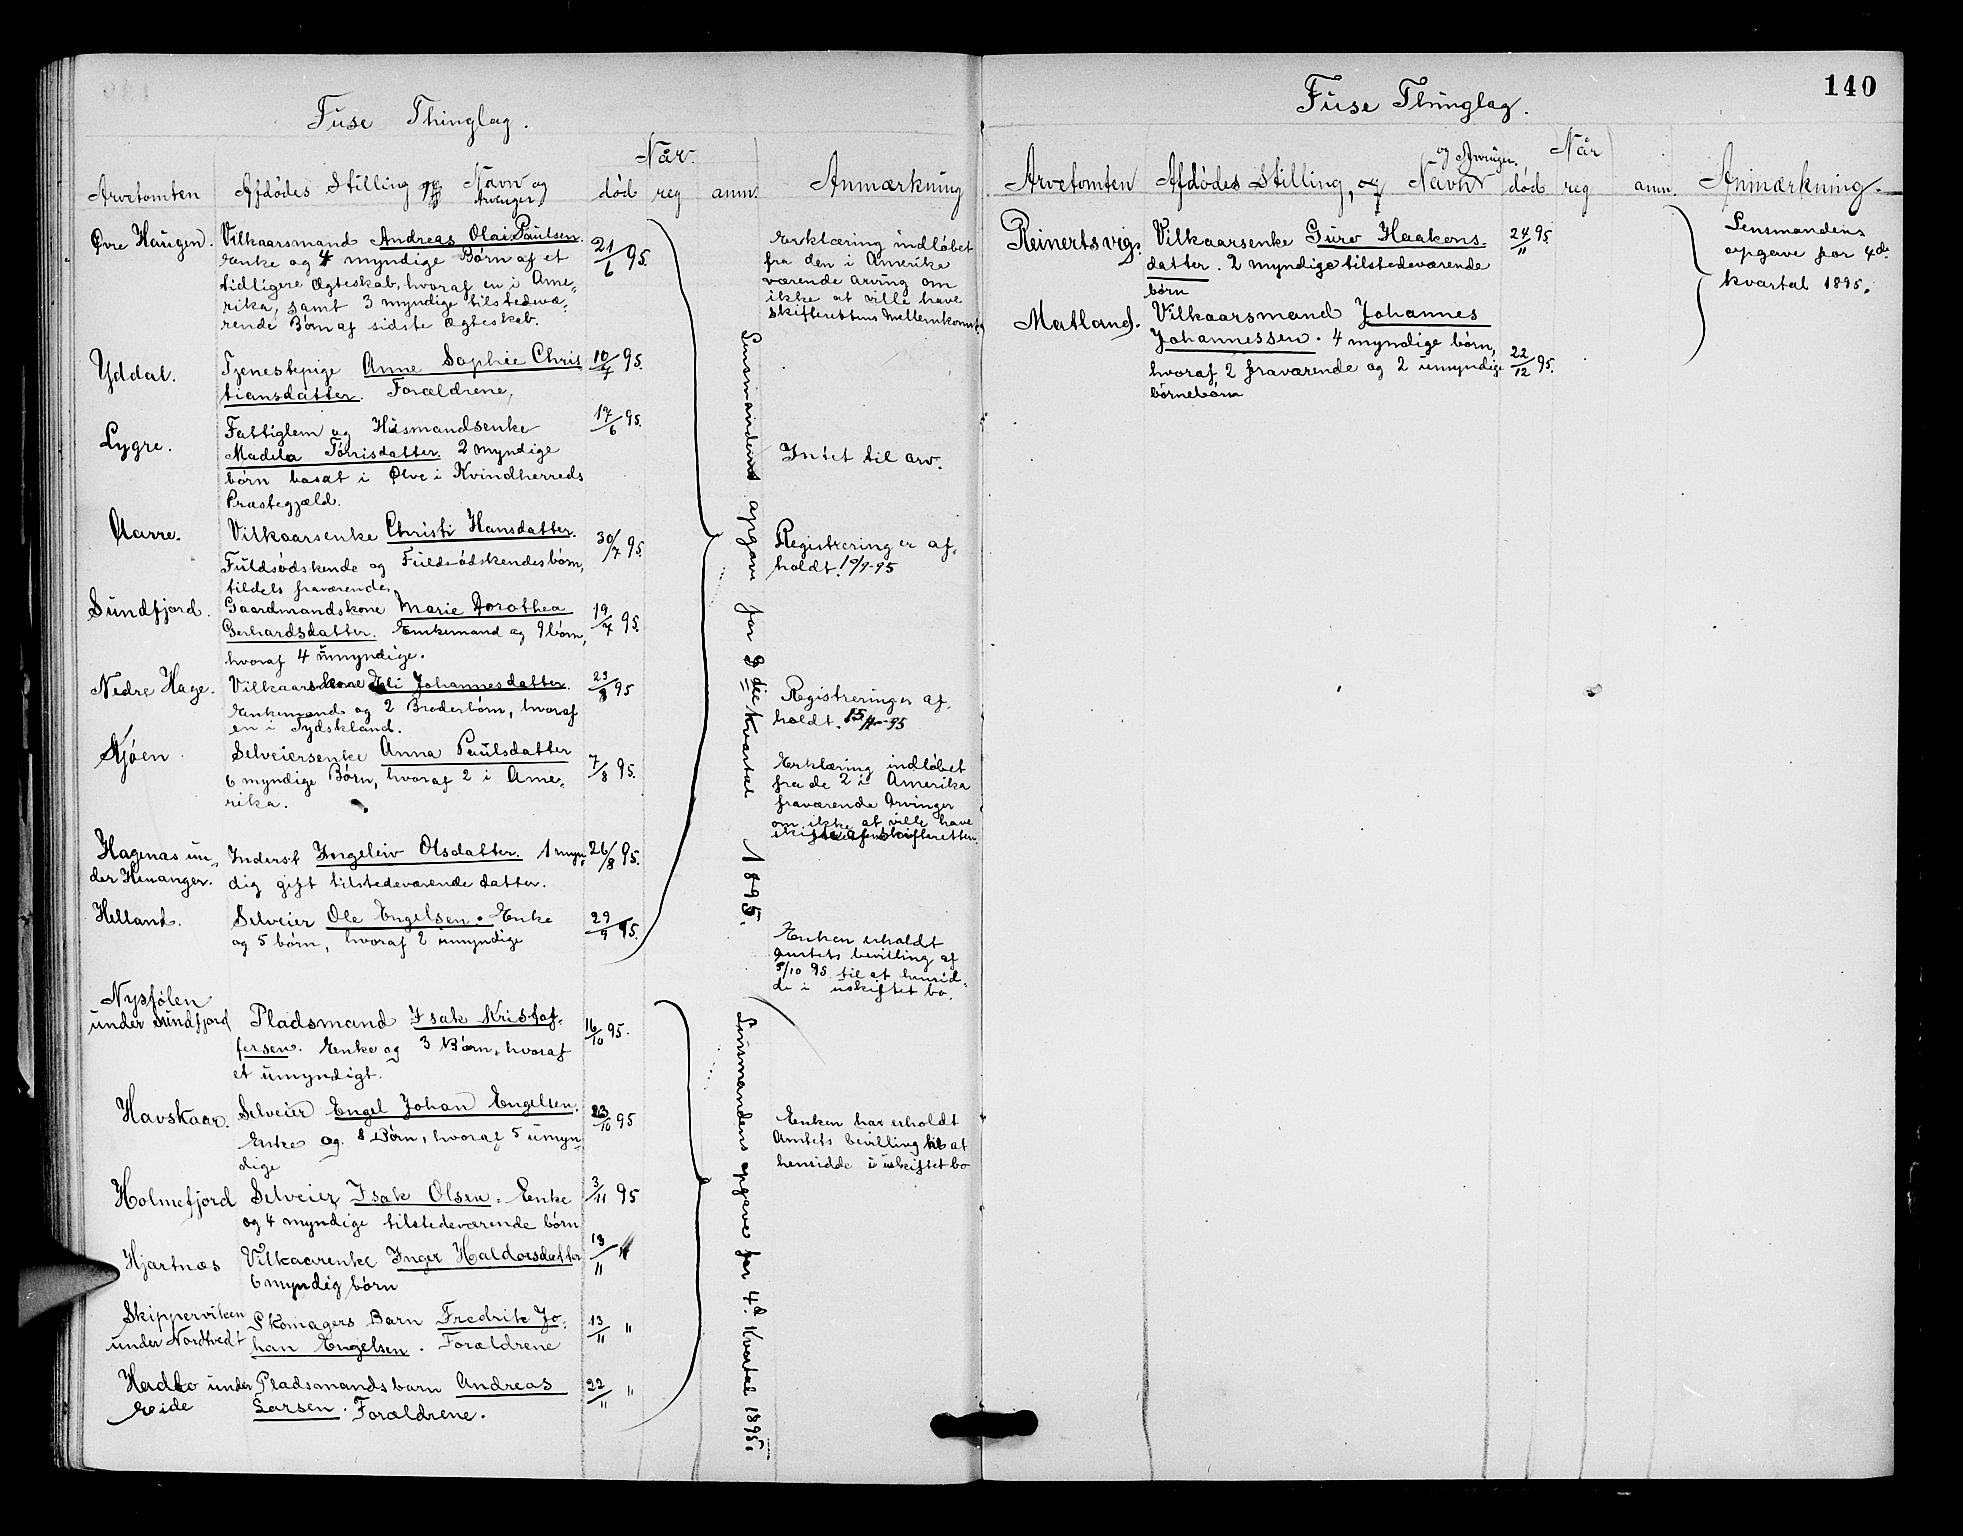 Fuse Thinglag.
Når
Arvetomten Afdödes Stilling og Navn og Arvinger död reg anm. Anmærkning
Øvre Haugen. Vilkaarsmand Andreas Olai Paulsen. 21/6 95.
Enke og 4 myndige Børn af et
tidligere Ægteskab, hvoraf en i Ame-
rika, samt 3 myndige tilstedevæ-
rende Børn af sidste Ægteskab.
Erklæring indløbet
fra den i Amerika
værende arving om
ikke at ville have
skifterettens Mellemkomst
Yddal. Tjenestepige Anne Sophie Chris 10/7 95.
tiansdatter. Forældrene,
Lygre. Fattiglem og Husmandsenke 17/6 95.
Madela Tørrisdatter. 2 myndige
børn bosat i Ølve i Kvindherreds
Præstegjæld.
Intet til arv.
Aarre. Vilkaarsenke Christi Hansdatter. 30/7 95.
Fuldsødskende og Fuldsødskendesbørn,
tildels fraværende,
Registrering er af-
holdt.
Sundfjord. Gaardmandskone Marie Dorothea 19/7 95.
Gerhardsdatter. Enkemand og 9 børn,
hvoraf 4 umyndige.
Nedre Hage. Vilkaarskone Johannesdatter. 23/8 95
Enkemand og 2 Broderbørn, hvoraf
en i Tydskland.
Registrering er af-
holdt.
Kjøen. Selveiersenke Anna Paulsdatter 7/8 95.
6 myndige Børn, hvoraf 2 i Ame-
rika.
Erklæring indløbet
fra de 2 i Amerika
fraværende Arvinger
om ikke at ville have
skifte af skifteretten.
Hagenæs un-
der Henanger. Inderst Ingeleiv Olsdatter. 1 myn- 26/8 95.
dig gift tilstedeværende datter.
Helland. Selveier Ole Engelsen. Enke 29/9 95.
og 5 børn, hvoraf 2 umyndige
Enken erholdt
amtets bevilling af
5/10 95 til at hensid-
de i uskiftet bo.
Lensmandens opgave for 3die Kvartal 1895.
Nystølen
under Sundfjord Pladsmand Isak Kristof- 16/10 95.
fersen. Enke og 3 Børn, hvoraf
et umyndigt.
Havskaar. Selveier Engel Johan Engelsen. 23/10 95
Enke og 8 Børn, hvoraf 5 umyn-
dige
Enken har erholdt
Amtets bevilling til at
hensidde i uskiftet bo
Holmefjord Selveier Isak Olsen. Enke 3/11 95
og 4 myndige tilstedeværende børn
Hjartnæs Vilkaarenke Inger Haldorsdatter 13/11 "
6 myndig børn
Skippervიken
under Nordtvedt Skomagers Barn Fredrik Jo- 13/11 "
han Engelsen. Forældrene
Hadlo under
Eide Pladsmandsbarn Andreas 22/11 "
Larsen. Forældrene.
Lensmandens opgave for 4d. Kvartal 1895.
140
Fuse Thinglag.
og Arvinger. Når
Arvetomten Afdödes Stilling, og Navn död reg anm. Anmærkning.
Reinertsvig. Vilkaarsenke Guro Haakons- 24/11 95.
datter. 2 myndige tilstedeværende
børn
Matland. Vilkaarsmand Johannes
Johannessen. 4 myndige børn, 22/12 95.
hvoraf 2 fraværende og 2 umyndige
børnebørn
Lensmandens
opgave for 4de
kvartal 1895.